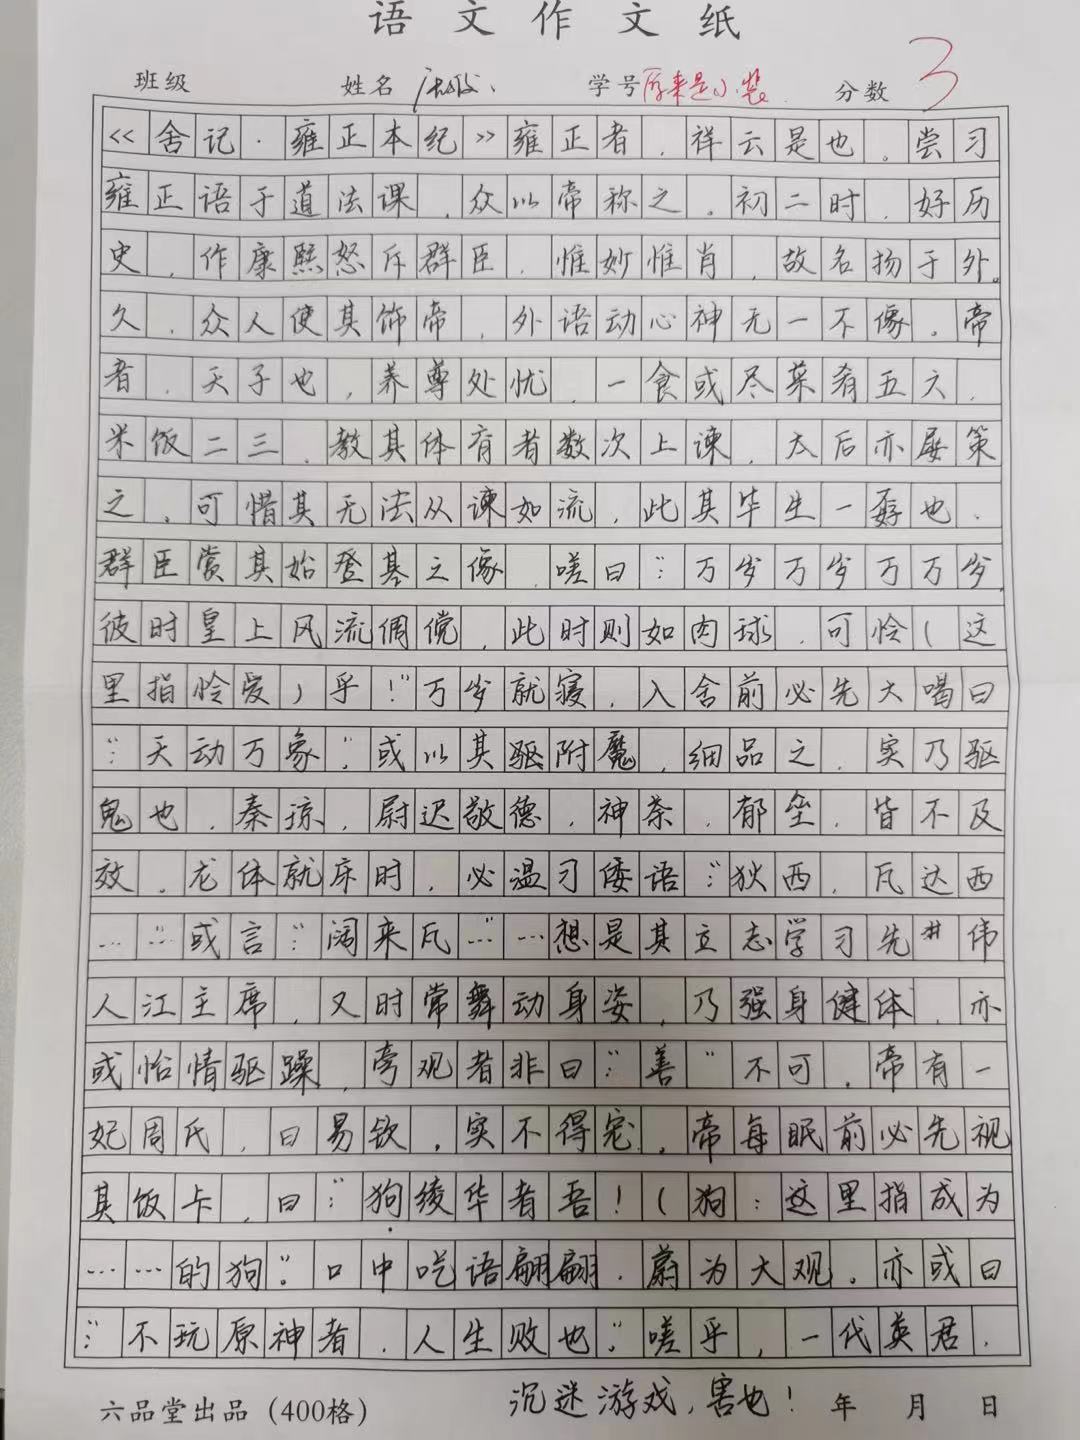 语文作文纸
班级 姓名 学号 原来是小裴 分数 3
《舍记·雍正本纪》雍正者,祥云是也。尝习
雍正语于道法课,众以帝称之。初二时,好历
史,作康熙怒斥群臣,惟妙惟肖,故名扬于外。
久,众人使其饰帝,外语动心神无一不像。帝
者,天子也,养尊处忧,一食或尽菜肴五六,
米饭二三,教其体育者数次上谏,太后亦屡策
之。可惜其无法从谏如流,此其毕生一孬也。
群臣赏其始登基之像,嗟曰:“万岁万岁万万岁,
彼时皇上风流倜傥,此时则如肉球,可怜(这
里指怜爱)乎!”万岁就寝,入舍前必先大喝曰
:“天动万象”,或以其驱附魔,细品之,实乃驱
鬼也,秦琼,尉迟敬德,神荼,郁垒,皆不及
效。龙体就床时,必温习倭语:“狄西,瓦达西
……”或言:“阔来瓦……”…想是其立志学习先#伟
人江主席,又时常舞动身姿,乃强身健体,亦
或怡情驱躁,旁观者非曰:“善”不可。帝有一
妃周氏,曰易钦,实不得宠,帝每眠前必先视
其饭卡,曰:“狗绫华者吾!(狗:这里指成为
……的狗”。口中呓语翩翩,蔚为大观。亦或曰
:“不玩原神者,人生败也。”嗟乎,一代英君,
沉迷游戏,害也!
六品堂出品(400格) 年 月 日